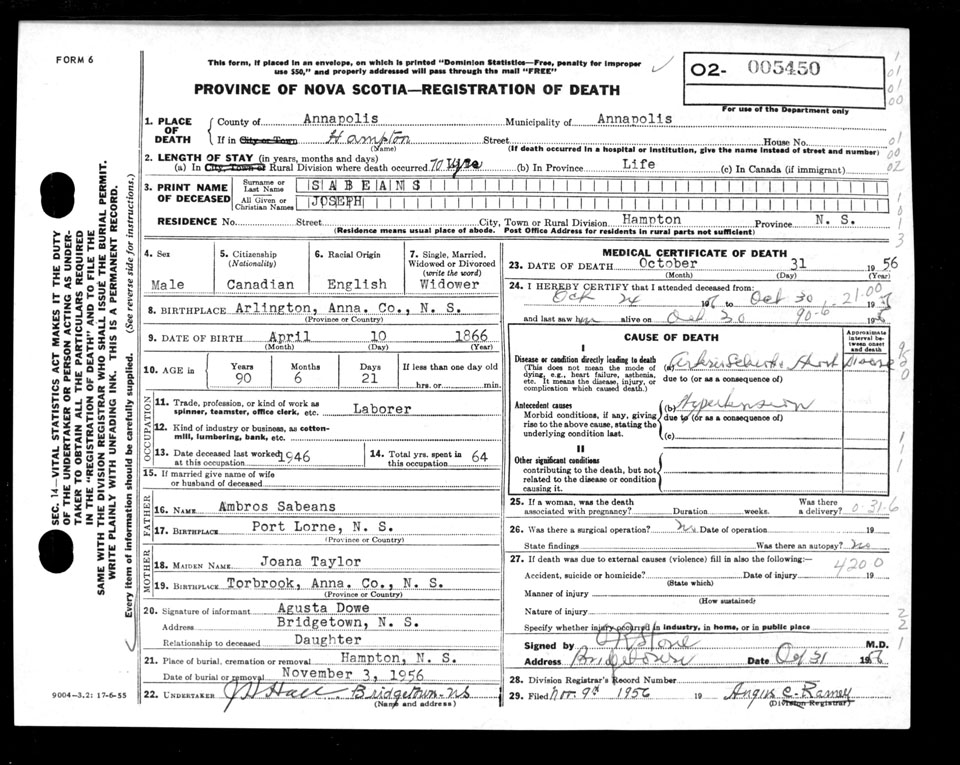 FORM 6
This form, if placed in an envelope, on which is printed "Dominion Statistics—Free, penalty for improper
use $50," and properly addressed will pass through the mail "FREE"
O2- 005450
For use of the Department only
PROVINCE OF NOVA SCOTIA—REGISTRATION OF DEATH
1. PLACE OF DEATH
County of Annapolis Municipality of Annapolis
If in City or Town Hampton Street House No.
(Name) (If death occurred in a hospital or institution, give the name instead of street and number)
2. LENGTH OF STAY (in years, months and days)
(a) In City, Town or Rural Division where death occurred 70 yrs (b) In Province Life (c) In Canada (if immigrant)
3. PRINT NAME OF DECEASED
Surname or Last Name SABEANS
All Given or Christian Names JOSEPH
RESIDENCE No. Street City, Town or Rural Division Hampton Province N. S.
(Residence means usual place of abode. Post Office Address for residents in rural parts not sufficient)
4. Sex
Male
5. Citizenship
(Nationality)
Canadian
6. Racial Origin
English
7. Single, Married,
Widowed or Divorced
(write the word)
Widower
8. BIRTHPLACE Arlington, Anna. Co., N. S.
(Province or Country)
9. DATE OF BIRTH April 10 1866
(Month) (Day) (Year)
10. AGE in
Years Months Days If less than one day old
90 6 21 hrs. or min.
OCCUPATION
11. Trade, profession, or kind of work as
spinner, teamster, office clerk, etc. Laborer
12. Kind of industry or business, as cotton-
mill, lumbering, bank, etc.
13. Date deceased last worked
at this occupation 1946
14. Total yrs. spent in
this occupation 64
15. If married give name of wife
or husband of deceased
FATHER
16. NAME Ambros Sabeans
17. BIRTHPLACE Port Lorne, N. S.
(Province or Country)
MOTHER
18. MAIDEN NAME Joana Taylor
19. BIRTHPLACE Torbrook, Anna. Co., N. S.
(Province or Country)
20. Signature of informant Agusta Dowe
Address Bridgetown, N. S.
Relationship to deceased Daughter
21. Place of burial, cremation or removal Hampton, N. S.
Date of burial or removal November 3, 1956
22. UNDERTAKER J H Hall Bridgetown NS
(Name and address)
MEDICAL CERTIFICATE OF DEATH
23. DATE OF DEATH October 31 1956
(Month) (Day) (Year)
24. I HEREBY CERTIFY that I attended deceased from:
Oct 24 to Oct 30 21.00
and last saw him alive on Oct 30 90-6
CAUSE OF DEATH
Approximate
interval be-
tween onset
and death
I
Disease or condition directly leading to death
(This does not mean the mode of
dying, e.g., heart failure, asthenia,
etc. It means the disease, injury, or
complication which caused death.)
(a) Heart Disease
due to (or as a consequence of)
Antecedent causes
Morbid conditions, if any, giving
rise to the above cause, stating the
underlying condition last.
(b) Hypertension
due to (or as a consequence of)
(c)
II
Other significant conditions
contributing to the death, but not
related to the disease or condition
causing it.
25. If a woman, was the death
associated with pregnancy? Duration weeks. Was there
a delivery? 0-31-6
26. Was there a surgical operation? No Date of operation 19
State findings Was there an autopsy? No
27. If death was due to external causes (violence) fill in also the following:
4200
Accident, suicide or homicide? Date of injury 19
(State which)
Manner of injury
(How sustained)
Nature of injury
Specify whether injury occurred in industry, in home, or in public place
Signed by M.D.
Address Bridgetown Date Oct 31 1956
28. Division Registrar's Record Number
29. Filed Nov. 9th 1956 19 Angus C. Ramey
(Division Registrar)
SEC. 14—VITAL STATISTICS ACT MAKES IT THE DUTY
OF THE UNDERTAKER OR PERSON ACTING AS UNDER-
TAKER TO OBTAIN ALL THE PARTICULARS REQUIRED
IN THE "REGISTRATION OF DEATH" AND TO FILE THE
SAME WITH THE DIVISION REGISTRAR WHO SHALL ISSUE THE BURIAL PERMIT.
WRITE PLAINLY WITH UNFADING INK. THIS IS A PERMANENT RECORD.
Every item of information should be carefully supplied. (See reverse side for instructions.)
9004-3.2: 17-6-55